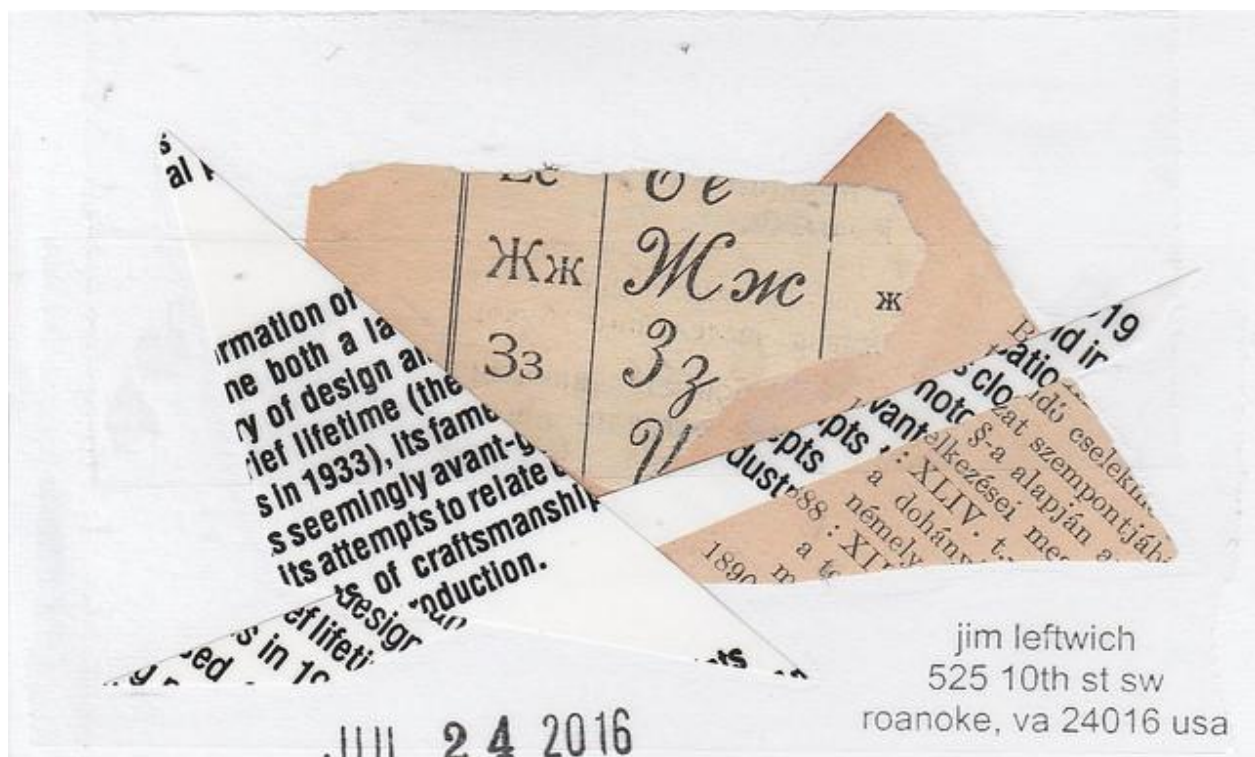 al
rmation of
ne both a la
y of design a
rief lifetime (the
s in 1933), its fame
s seemingly avant-g
its attempts to relate
ts of craftsmanship
design
roduction.
ef lifeti
s in 19
sed
Ее
Жж
Жж
ж
Зз
Зз
19
nd in
catio
s clo
note
vant
epts
dust
idú cselekm
zat szempontjáb
§-a alapján a
elkezései me
: XLIV. t.
a dohány
némely
888 : XLI
a te
1890
m
jim leftwich
525 10th st sw
roanoke, va 24016 usa
24 2016